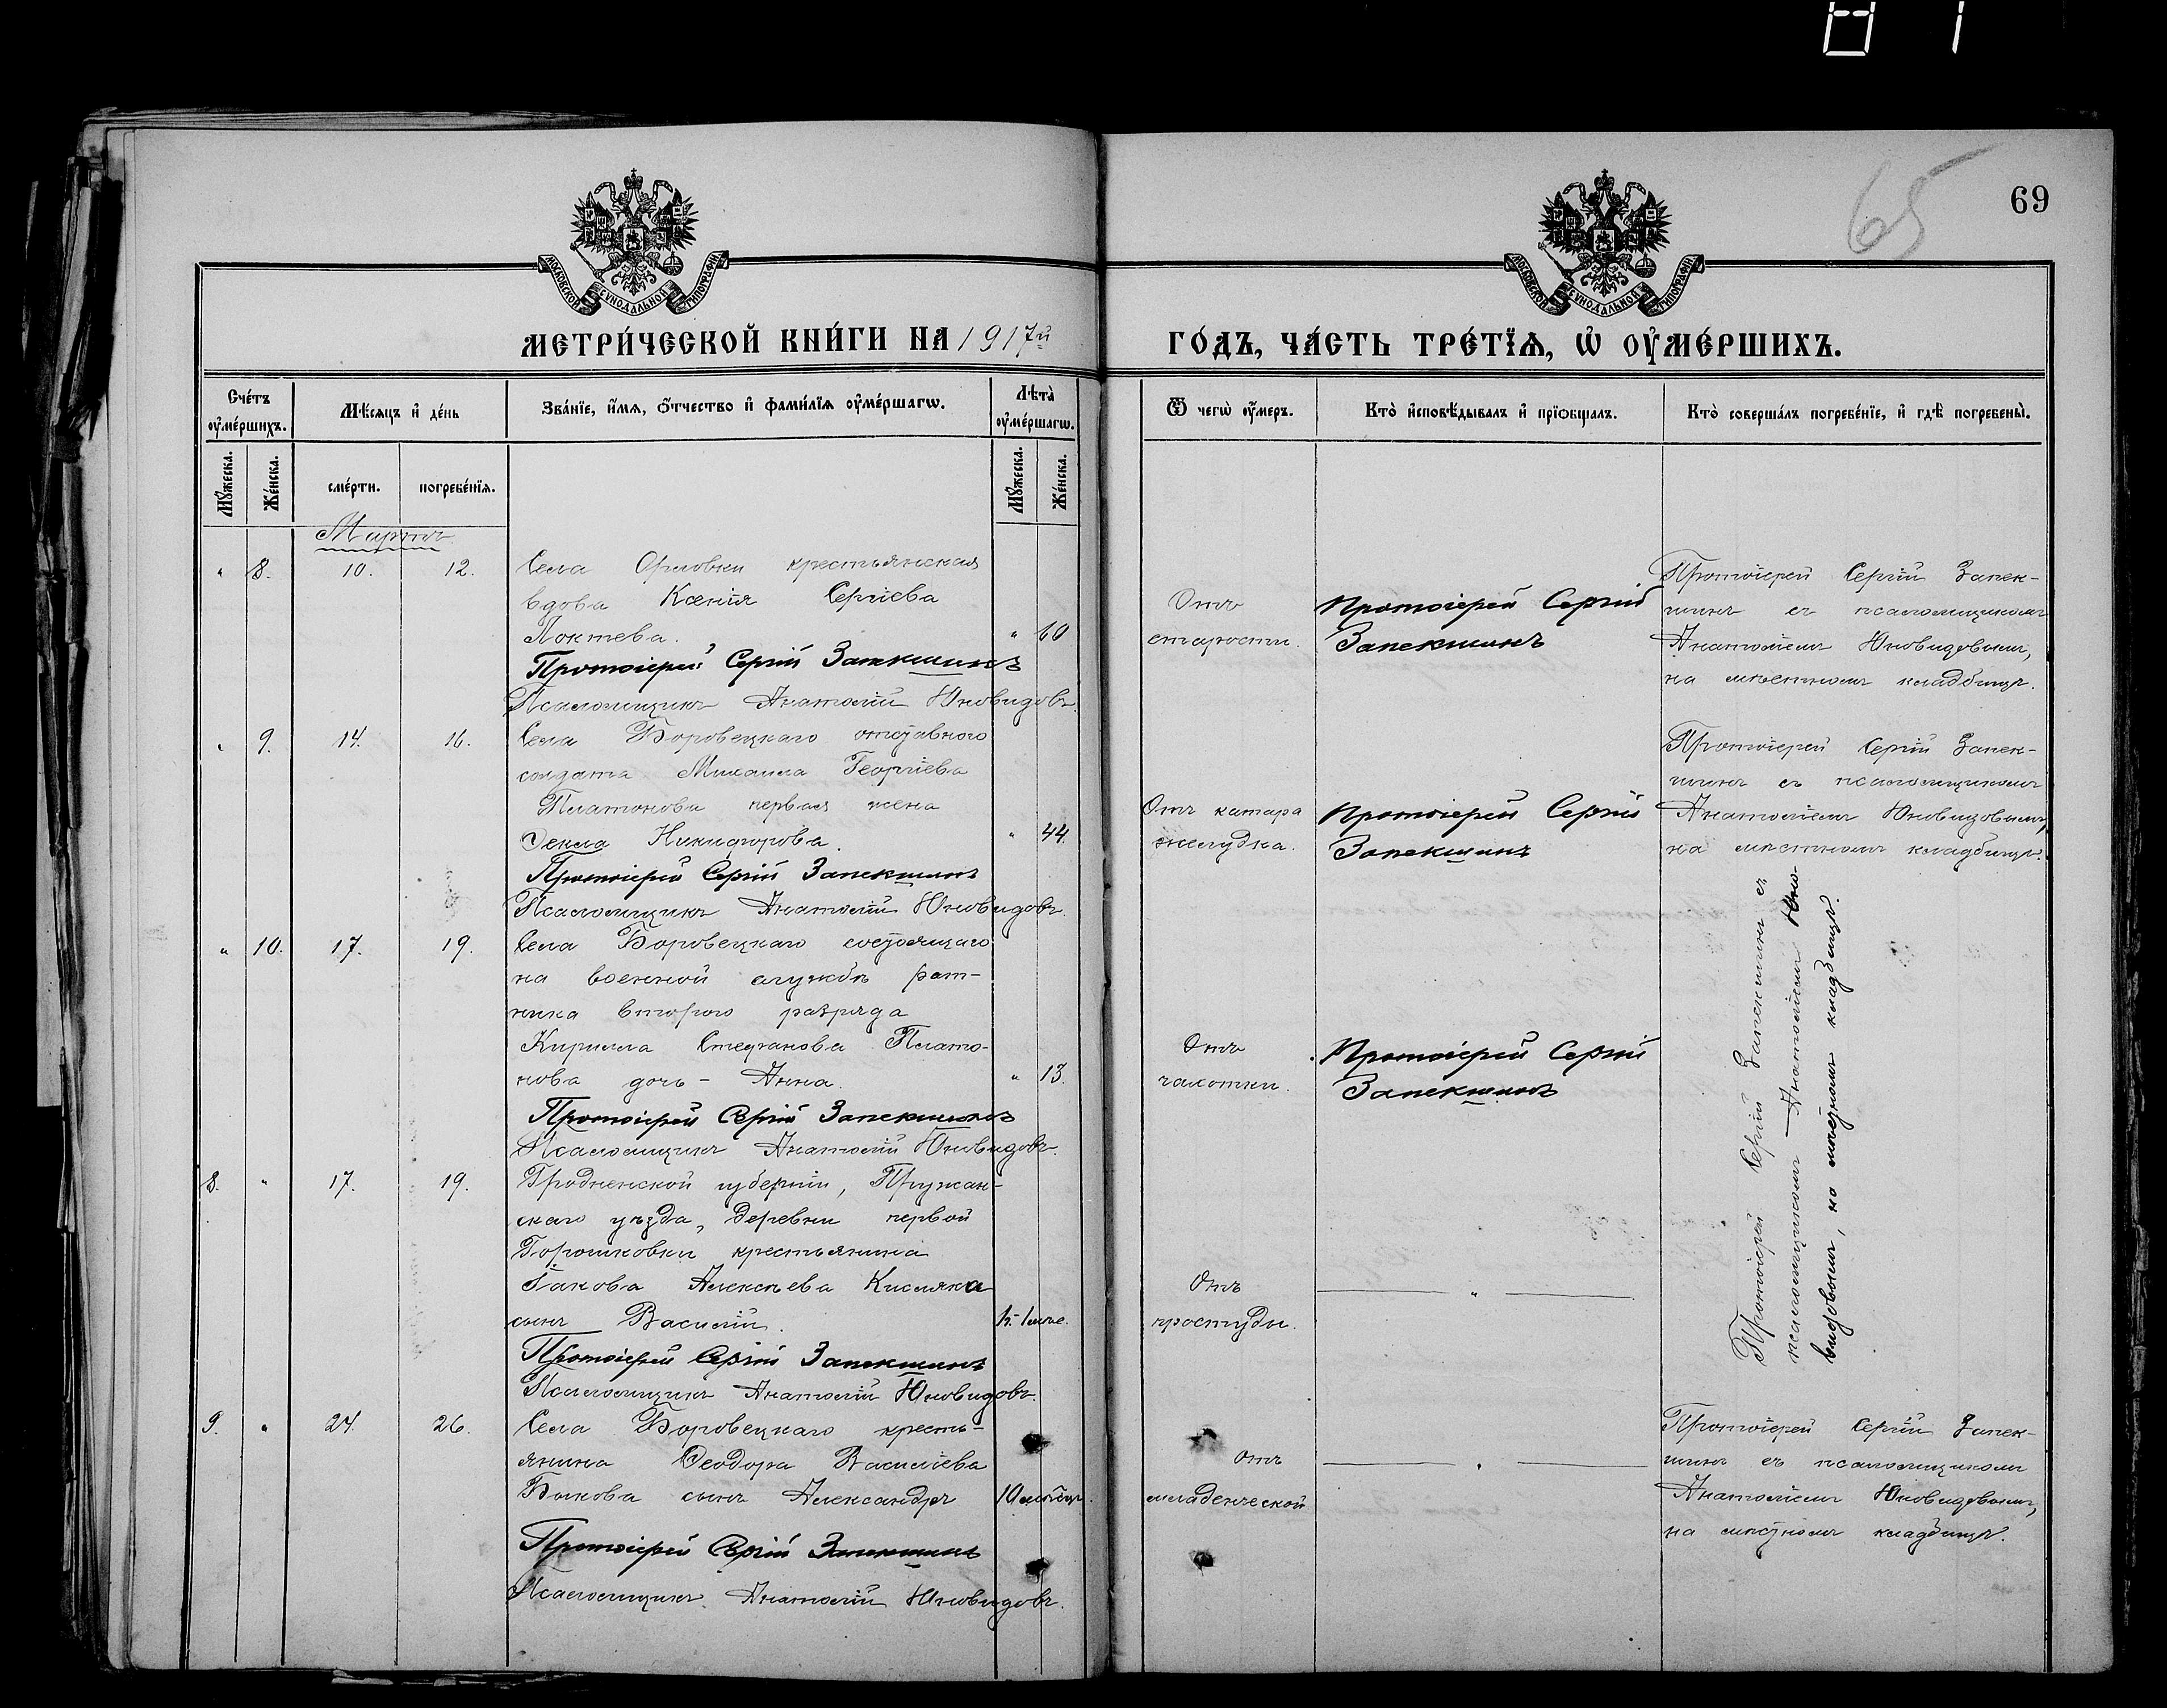 65
69
МОСКОВСКОЙ СУНОДАЛЬНОЙ ТИПОГРАФІИ
МОСКОВСКОЙ СУНОДАЛЬНОЙ ТИПОГРАФІИ
МЕТРИ́ЧЕСКОЙ КНИ́ГИ НА 1917й
ГО́ДЪ, ЧА́СТЬ ТРЕ́ТЇѦ, Ѡ҆ ОУ҆МЕ́РШИХЪ.
Сче́тъ оу҆ме́ршихъ.
Мѣ́сѧцъ и҆ де́нь
Зва́нїе, и҆́мѧ, ѻ҆́тчество и҆ фами́лїѧ оу҆ме́ршагѡ.
Лѣ́та оу҆ме́ршагѡ.
Ѿ чегѡ̀ оу҆́меръ.
Кто̀ и҆сповѣ́дывалъ и҆ прїѡбща́лъ.
Кто̀ соверша́лъ погребе́нїе, и҆ гдѣ̀ погребены̀.
Мꙋ́жеска.
Же́нска.
сме́рти.
погребе́нїѧ.
Мꙋ́жеска.
Же́нска.
Мартъ
" 8. 10. 12.
Села Орловки крестьянская
вдова Ксенія Сергіева
Локтева. " 60
Протоіерей Сергій Запекшинъ
Псаломщикъ Анатолій Юновидовъ.
Отъ
старости.
Протоіерей Сергій
Запекшинъ
Протоіерей Сергій Запек-
шинъ съ псаломщикомъ
Анатоліемъ Юновидовымъ,
на мѣстномъ кладбищѣ.
" 9. 14. 16.
Села Боровецкаго отставного
солдата Михаила Георгіева
Платонова первая жена
Ѳекла Никифорова. " 44.
Протоіерей Сергій Запекшинъ
Псаломщикъ Анатолій Юновидовъ.
Отъ катара
желудка.
Протоіерей Сергій
Запекшинъ
Протоіерей Сергій Запек-
шинъ съ псаломщикомъ
Анатоліемъ Юновидовымъ,
на мѣстномъ кладбищѣ.
" 10. 17. 19.
Села Боровецкаго состоящаго
на военной службѣ рат-
ника второго разряда
Кирилла Стефанова Плато-
нова дочь - Анна. " 13.
Протоіерей Сергій Запекшинъ
Псаломщикъ Анатолій Юновидовъ.
Отъ
чахотки.
Протоіерей Сергій
Запекшинъ
Протоіерей Сергій Запекшинъ съ
псаломщикомъ Анатоліемъ Юно-
видовымъ, на мѣстномъ кладбищѣ.
8. " 17. 19.
Гродненской губерніи, Пружан-
скаго уѣзда, деревни первой
Горошковки крестьянина
Іакова Алексѣева Кисляка
сынъ Василій.
Протоіерей Сергій Запекшинъ
Псаломщикъ Анатолій Юновидовъ.
Отъ
простуды.
"
9. " 24. 26.
Села Боровецкаго кресть-
янина Ѳеодора Василіева
Быкова сынъ Александръ 10 мѣсяц.
Протоіерей Сергій Запекшинъ
Псаломщикъ Анатолій Юновидовъ.
отъ
младенческой
"
Протоіерей Сергій Запек-
шинъ съ псаломщикомъ
Анатоліемъ Юновидовымъ,
на мѣстномъ кладбищѣ.